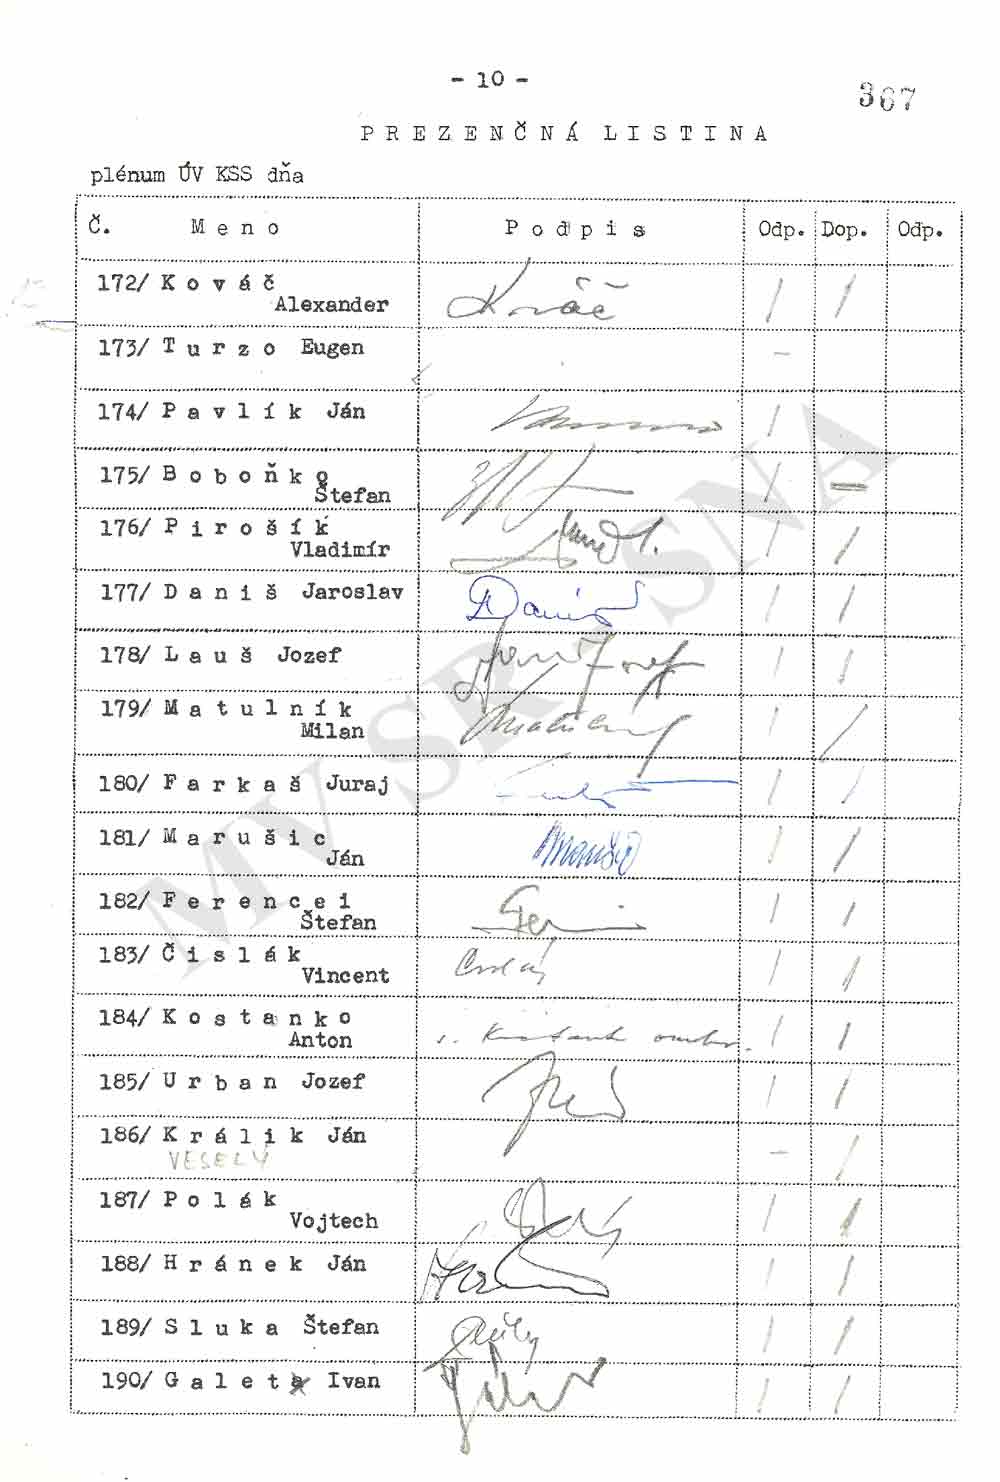 - 10 -
367
P R E Z E N Č N Á  L I S T I N A
plénum ÚV KSS dňa
Č. M e n o P o d p i s Odp. Dop. Odp.
172/ K o v á č Kováč / /
Alexander
173/ T u r z o Eugen -
174/ P a v l í k Ján /
175/ B o b o ň k o / -
Štefan
176/ P i r o š í k / /
Vladimír
177/ D a n i š Jaroslav Daniš / /
178/ L a u š Jozef Jozef / /
179/ M a t u l n í k / /
Milan
180/ F a r k a š Juraj / /
181/ M a r u š i c / /
Ján
182/ F e r e n c e i / /
Štefan
183/ Č i s l á k / /
Vincent
184/ K o s t a n k o / /
Anton
185/ U r b a n Jozef / /
186/ K r á l i k Ján - /
VESELÝ
187/ P o l á k / /
Vojtech
188/ H r á n e k Ján / /
189/ S l u k a Štefan / /
190/ G a l e t a Ivan / /
MV SR SNA